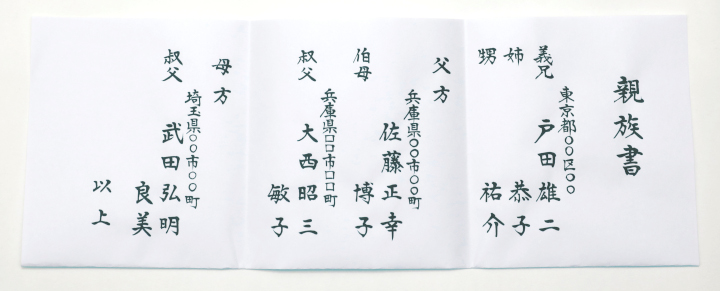 親族書
東京都○○区○○
義兄 戸田雄二
姉 恭子
甥 祐介
父方
兵庫県○○市○○町
佐藤正幸
伯母 博子
兵庫県□□市□□町
叔父 大西昭三
敏子
母方
埼玉県○○市○○町
叔父 武田弘明
良美
以上